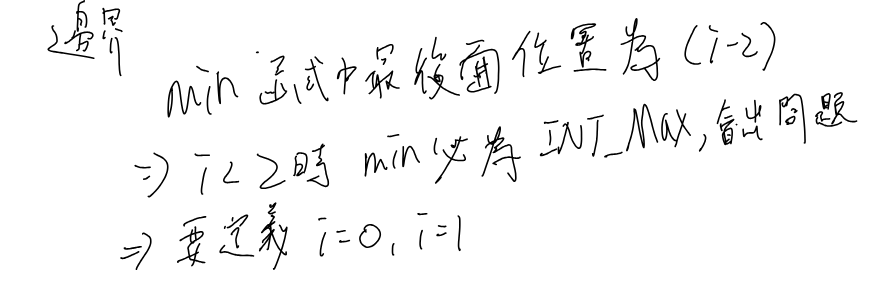 邊界
min 函式中最後面位置為 (i-2)
⇒ i < 2時 min必為 INT_Max, 會出問題
⇒ 要定義 i=0, i=1